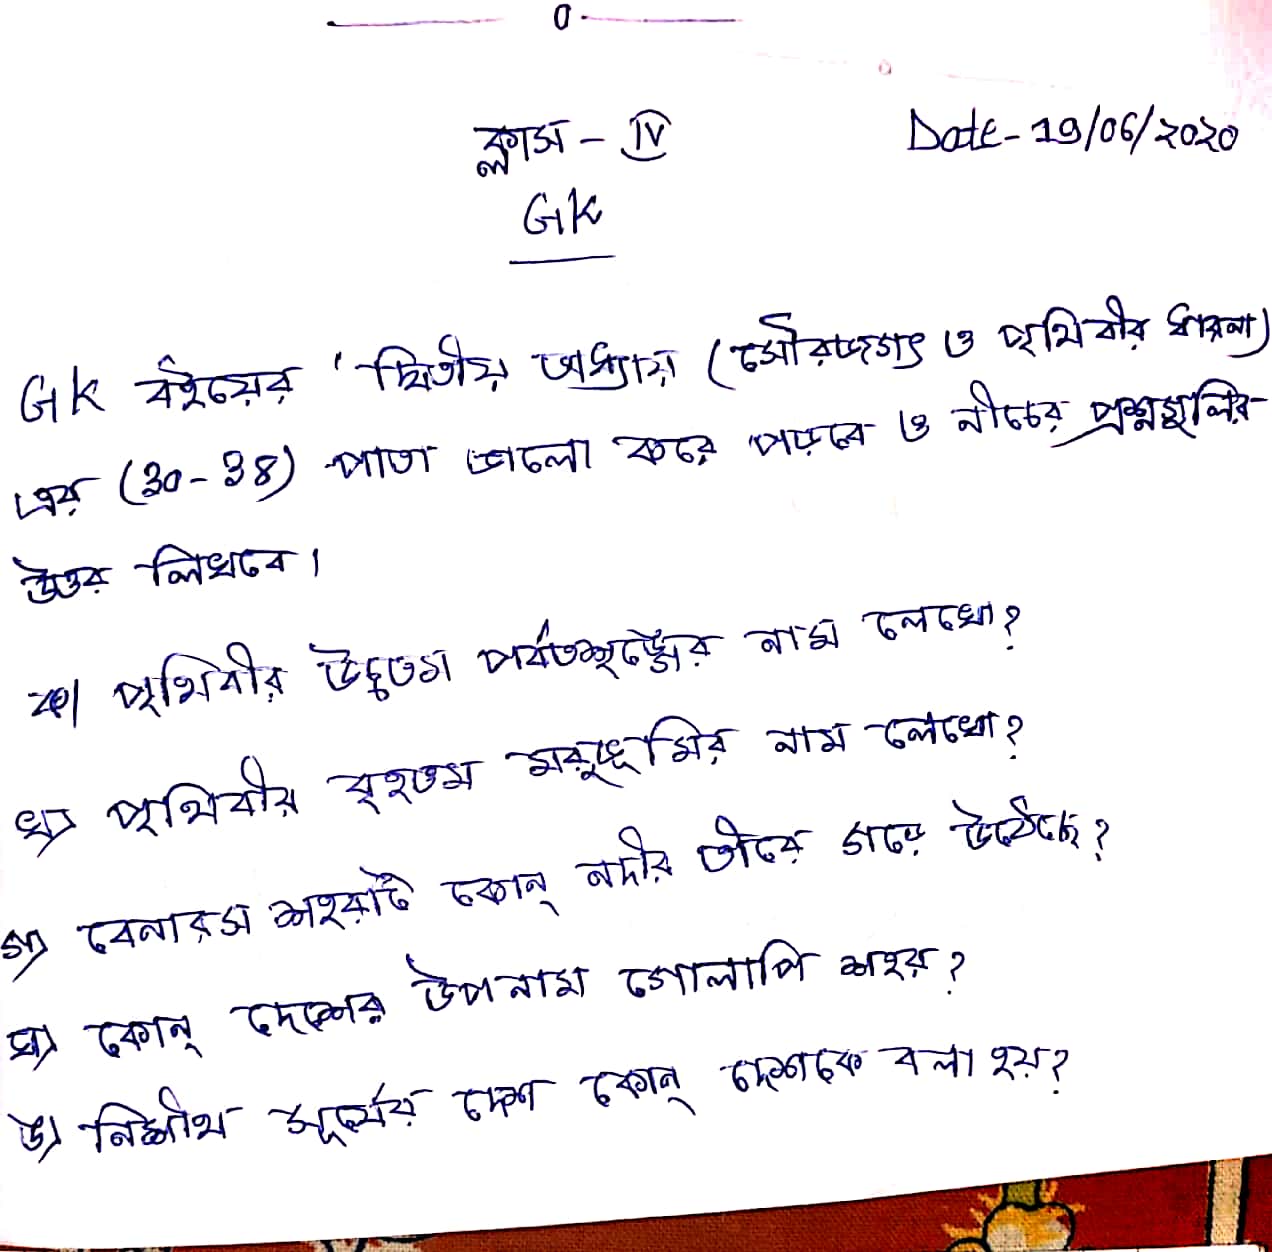 0
ক্লাস - IV
Date - 19/06/2020
GK
GK বইয়ের 'দ্বিতীয় অধ্যায় (সৌরজগৎ ও পৃথিবীর ধারনা)
এর (30-38) পাতা ভালো করে পড়বে ও নীচের প্রশ্নগুলির
উত্তর লিখবে।
ক) পৃথিবীর উচ্চতম পর্বতশৃঙ্গের নাম লেখো?
খ) পৃথিবীর বৃহতম মরুভূমির নাম লেখো?
গ) বেনারস শহরটি কোন্ নদীর তীরে গড়ে উঠেছে?
ঘ) কোন্ দেশের উপনাম গোলাপি শহর?
ঙ) নিশীথ সূর্যের দেশ কোন্ দেশকে বলা হয়?